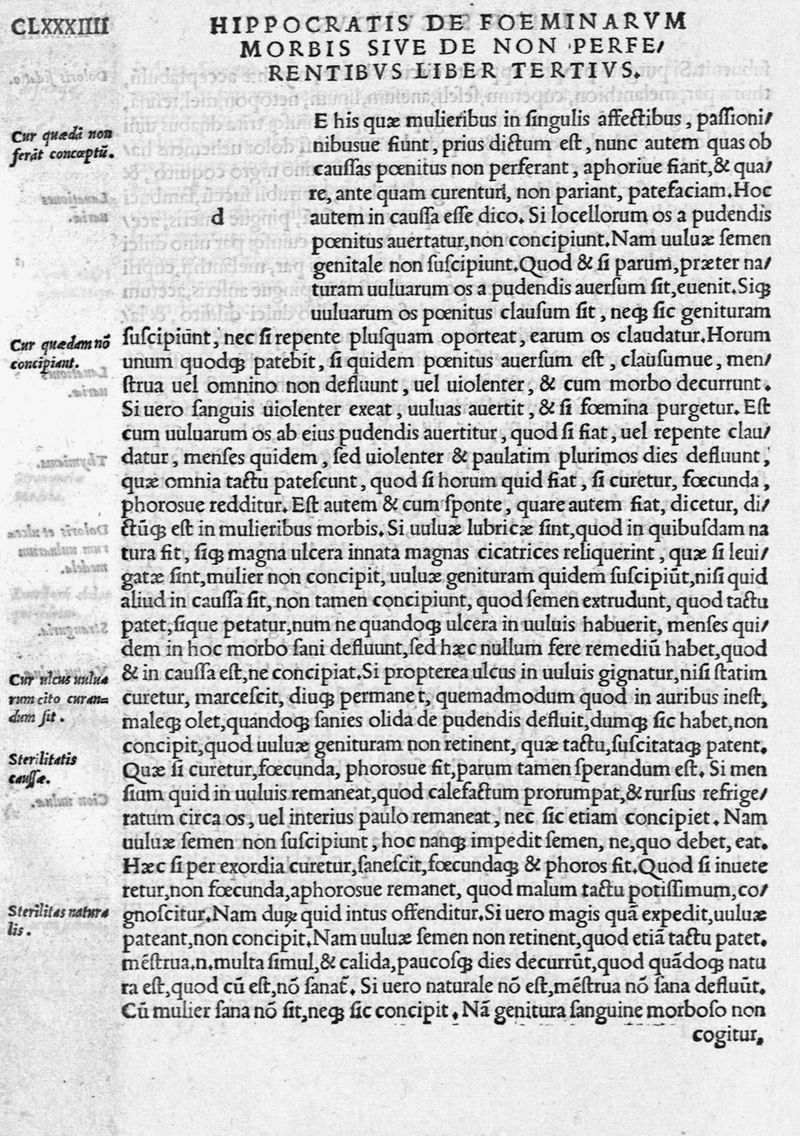 CLXXXIIII
HIPPOCRATIS DE FOEMINARVM
MORBIS SIVE DE NON PERFE/
RENTIBVS LIBER TERTIVS.
Cur quædā non
ferāt concœptū.
d
E his quæ mulieribus in singulis affectibus, passioni/
nibusue fiunt, prius dictum est, nunc autem quas ob
caussas pœnitus non perferant, aphoriue fiant, & qua/
re, ante quam curenturi, non pariant, patefaciam. Hoc
autem in caussa esse dico. Si locellorum os a pudendis
pœnitus auertatur, non concipiunt. Nam uuluæ semen
genitale non suscipiunt. Quod & si parum, præter na/
turam uuluarum os a pudendis auersum sit, euenit. Siqꝫ
uuluarum os pœnitus clausum sit, neqꝫ sic genituram
Cur quædam nō
concipiant.
suscipiūnt, nec si repente plusquam oporteat, earum os claudatur. Horum
unum quodqꝫ patebit, si quidem pœnitus auersum est, clausumue, men/
strua uel omnino non defluunt, uel uiolenter, & cum morbo decurrunt.
Si uero sanguis uiolenter exeat, uuluas auertit, & si fœmina purgetur. Est
cum uuluarum os ab eius pudendis auertitur, quod si fiat, uel repente clau/
datur, menses quidem, sed uiolenter & paulatim plurimos dies defluunt,
quæ omnia tactu patescunt, quod si horum quid fiat, si curetur, fœcunda,
phorosue redditur. Est autem & cum sponte, quare autem fiat, dicetur, di/
ctūqꝫ est in mulieribus morbis. Si uuluæ lubricæ sint, quod in quibusdam na
tura fit, siqꝫ magna ulcera innata magnas cicatrices reliquerint, quæ si leui/
gatæ sint, mulier non concipit, uuluæ genituram quidem suscipiūt, nisi quid
aliud in caussa sit, non tamen concipiunt, quod semen extrudunt, quod tactu
patet, sique petatur, num ne quandoqꝫ ulcera in uuluis habuerit, menses qui/
dem in hoc morbo sani defluunt, sed hæc nullum fere remediū habet, quod
Cur ulcus uulua
rum cito curan=
dum sit.
& in caussa est, ne concipiat. Si propterea ulcus in uuluis gignatur, nisi statim
curetur, marcescit, diuqꝫ permanet, quemadmodum quod in auribus inest,
maleqꝫ olet, quandoqꝫ sanies olida de pudendis defluit, dumqꝫ sic habet, non
concipit, quod uuluæ genituram non retinent, quæ tactu, suscitataqꝫ patent.
Sterilitatis
caussæ.
Quæ si curetur, fœcunda, phorosue fit, parum tamen sperandum est. Si men
sium quid in uuluis remaneat, quod calefactum prorumpat, & rursus refrige/
ratum circa os, uel interius paulo remaneat, nec sic etiam concipiet. Nam
uuluæ semen non suscipiunt, hoc nanqꝫ impedit semen, ne, quo debet, eat.
Hæc si per exordia curetur, sanescit, fœcundaqꝫ & phoros fit. Quod si inuete
retur, non fœcunda, aphorosue remanet, quod malum tactu potissimum, co/
Sterilitas natura
lis.
gnoscitur. Nam duꝝ quid intus offenditur. Si uero magis quā expedit, uuluæ
pateant, non concipit. Nam uuluæ semen non retinent, quod etiā tactu patet.
mēstrua.n. multa simul, & calida, paucosqꝫ dies decurrūt, quod quādoqꝫ natu
ra est, quod cū est, nō sanat̄. Si uero naturale nō est, mēstrua nō sana defluūt.
Cū mulier sana nō sit, neqꝫ sic concipit. Nā genitura sanguine morboso non
cogitur,